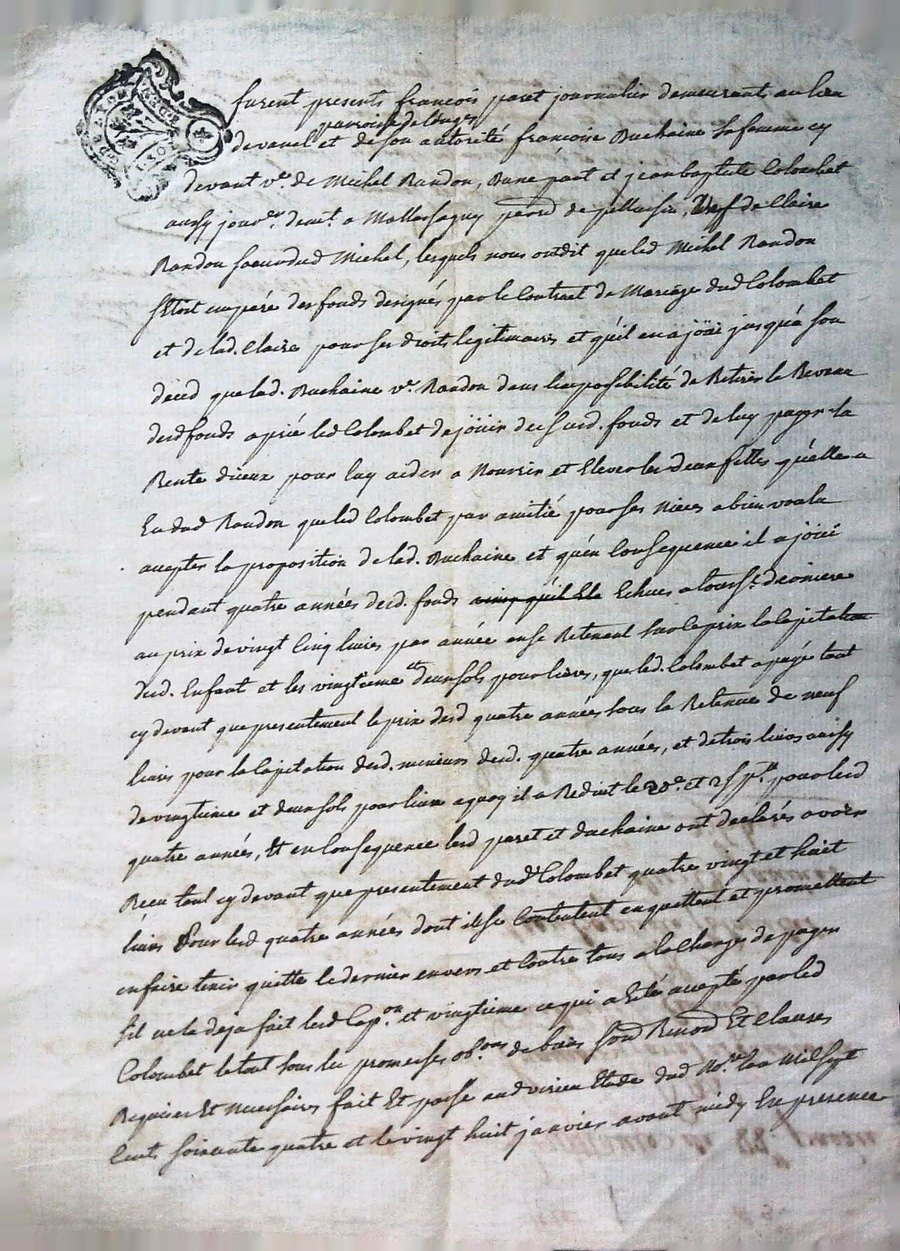 furent presents françois paret journalier demeurant au lieu
paroisse de longes
devanel et de son autorité françoise Buchaine sa femme cy
devant v.e de Michel Randon, Dune part et jean baptiste Colombet
aussy jour.er dem.t a Mallassaguy paroisse de pellussin, Veuf de Claire
Randon soeur dud Michel, lesquels nous ont dit que led Michel Randon
sétoit emparé des fonds designés par le Contract de Mariage dud Colombet
et de lad. Claire pour ses droits legitimaires et qu'il en a jöüi jusqu'à son
deced que lad. Buchaine v.e Randon dans l'impossibilité de Retirer le Revenu
desd fonds a prié led Colombet de jöüir desusd. fonds et de luy payer la
Rente d'iceux pour luy aider a Nourrir et Elever les deux filles qu'elle a
Eu dud Randon que led Colombet par amitié pour ses Nieces a bien voulu
accepter la proposition de lad. Buchaine et qu'en Consequence il a jöüi
pendant quatre années desd. fonds Echues a tousst. derniere
au prix de vingt Cinq livres par année en se Retenant sur le prix la Capitation
desd. Enfant et les vingtieme et deux sols pour livres, que led. Colombet a payé tant
cy devant que presentement le prix desd quatre années sous la Retenue de neuf
livres pour la Capitation desd. mineurs desd. quatre années, et de trois livres aussy
de vingtieme et deux sols pour livre a quoy il a Reduit le 20.e et 2 s p.r pour lesd
quatre années, Et en Consequence lesd paret et Buchaine ont declarés avoir
Recu tant cy devant que presentement dud Colombet quatre vingt et huit
livres Pour lesd quatre années dont ils se Contentent en quittent et promettent
en faire tenir quitte le dernier envers et Contre tous a la Charge de payer
s'il ne la deja fait lesd Cap.on et vingtieme ce qui a Eté accepté par led
Colombet le tout sous les promesses ob.ons de biens Renond Et Clauses
Requises Et necessaires fait Et passé aud virieu Etude dud No.re L'an Mil sept
Cent soixante quatre et le vingt huit janvier avant midy En presence